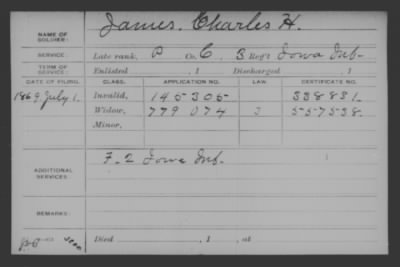 NAME OF SOLDIER: James, Charles H.
SERVICE: Late rank, P Co. C, 3 Reg't Iowa Inf.
TERM OF SERVICE: Enlisted , 1 Discharged , 1
DATE OF FILING. CLASS. APPLICATION NO. LAW. CERTIFICATE NO.
1869. July 1. Invalid, 145305 338831.
Widow, 779074 557538.
Minor,
ADDITIONAL SERVICES: F-2 Iowa Inf.
REMARKS:
Died , 1 , at